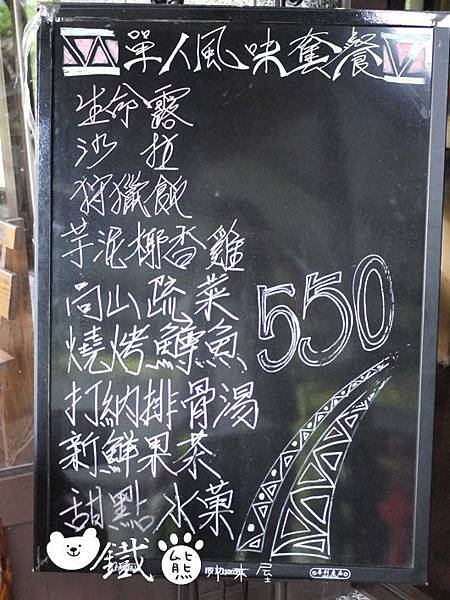 單人風味套餐
生命露
沙拉
狩獵飯
芋泥椰香雞
高山蔬菜
燒烤鱒魚
550
打納排骨湯
新鮮果茶
甜點 水菓
鐵熊
屋